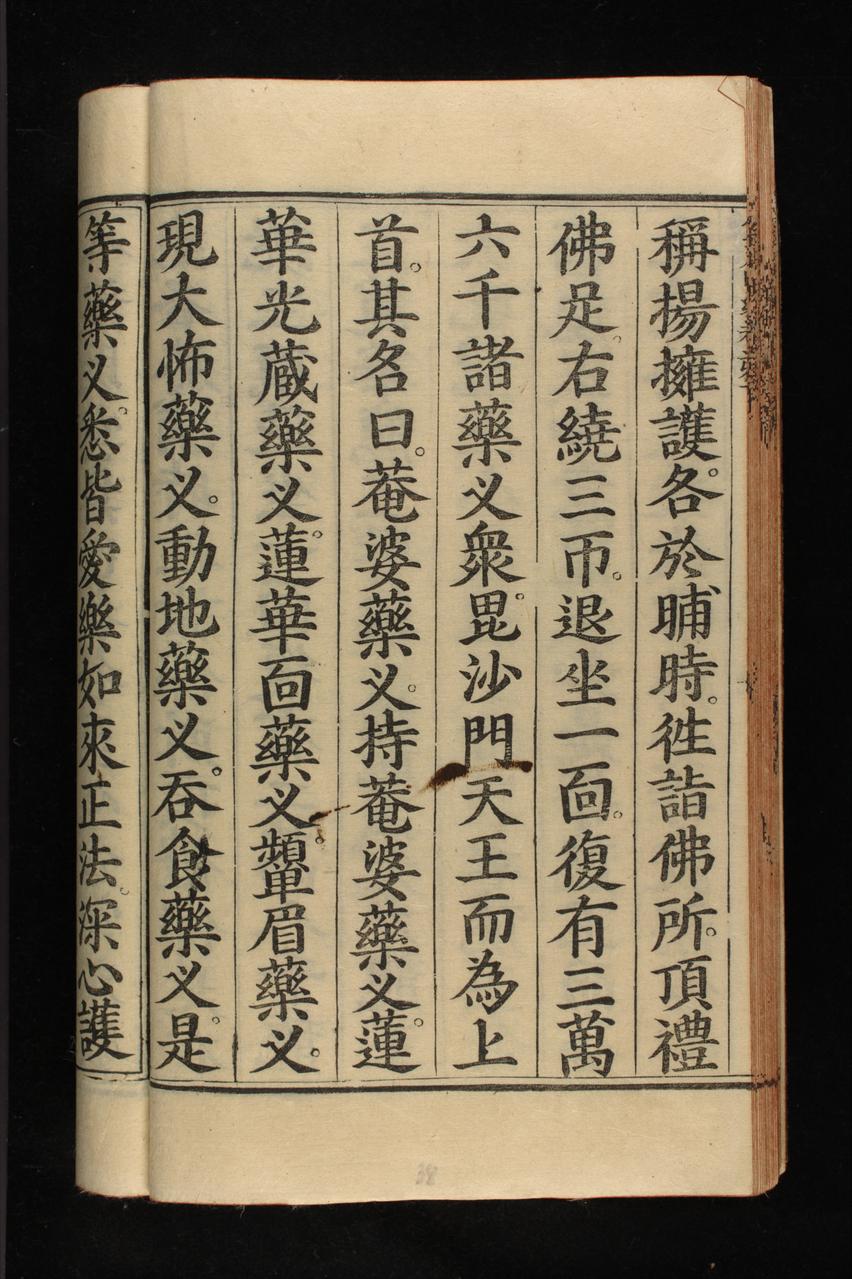 稱揚擁護。各於晡時。徃詣佛所。頂禮
佛足。右繞三帀。退坐一面。復有三萬
六千諸藥义衆。毘沙門天王而為上
首。其名曰。菴婆藥义。持菴婆藥义。蓮
華光蔵藥义。蓮華面藥义。顰眉藥义。
現大怖藥义。動地藥义。吞食藥义。是
等藥义。悉皆愛樂如來正法。深心護
38